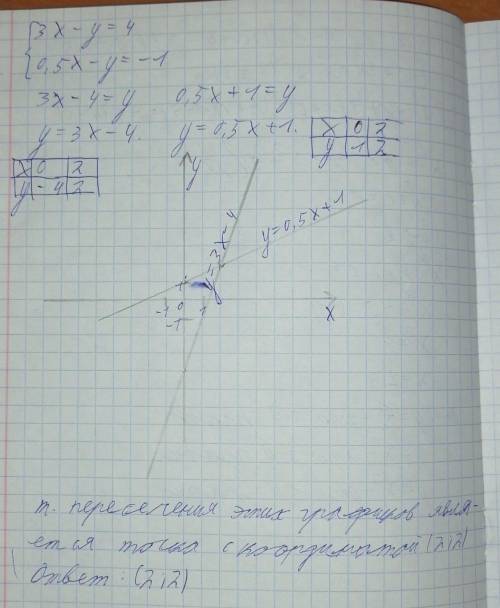 3x - y = 4
0,5x - y = -1
3x - 4 = y 0,5x + 1 = y
y = 3x - 4. y = 0,5x + 1.
x 0 2
y 1 2
x 0 2
y -4 2
y
y = 3x - 4
y = 0,5x + 1
1
-1 0 1 x
-1
т. пересечения этих графиков явля-
ется точка с координатой (2;2)
Ответ: (2;2)